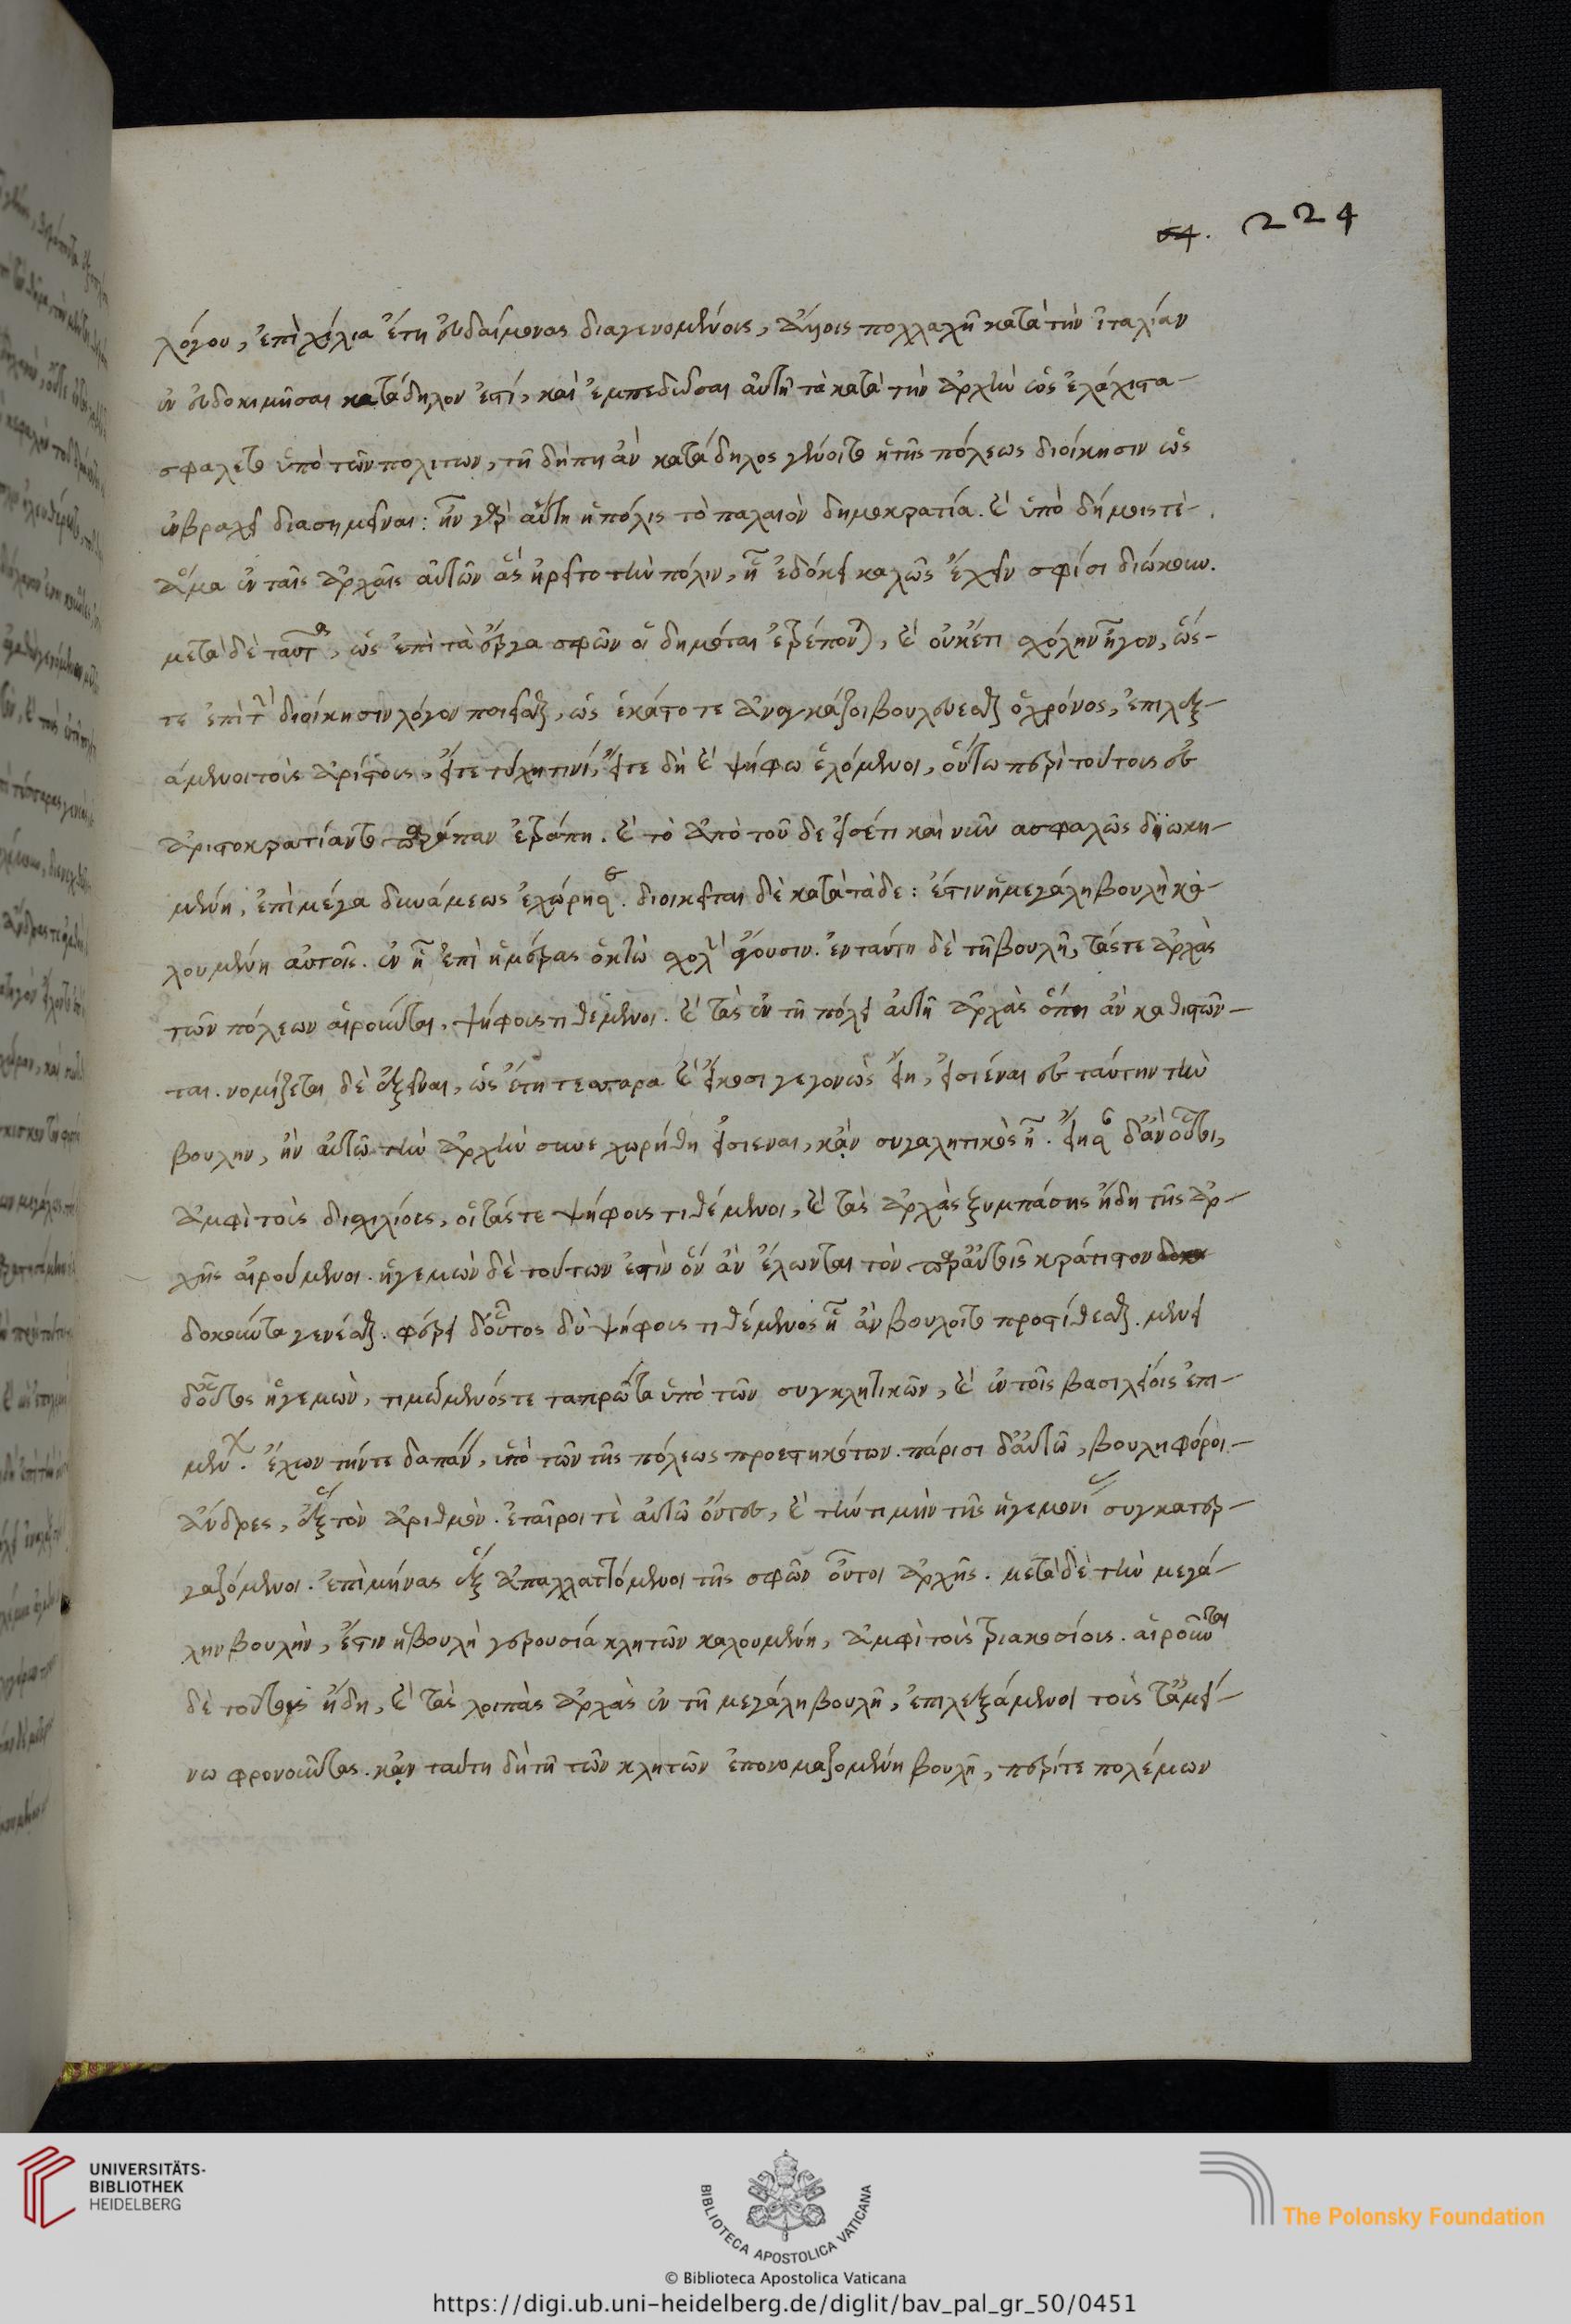 54. 224
λόγου, ἐπὶ χίλια ἔτη εὐδαίμονας διαγενομένοις, ἄλλοις πολλαχῆ κατὰ τὴν ἰταλίαν
ἐν εὐδοκιμῆσαι κατάδηλον ἐστί, καὶ ἐμπεδῶσαι αὐτῇ τὰ κατὰ τὴν ἀρχὴν ὡς ἐλάχιστα-
σφαλεῖσ ὑπὸ τῶν πολιτων, τῇ δήπη ἂν κατάδηλος γένοιτο ἡ τῆς πόλεως διοίκησιν ὡς
ἐν βραχεῖ διασημῆναι: ἦν γὰρ αὕτη ἡ πόλις τὸ παλαιὸν δημοκρατία. καὶ ὑπὸ δήμοις τὲ
ἅμα ἐν ταῖς ἀρχαῖς αὐτῶν ἃς ᾑρεῖτο τὴν πόλιν, ᾗ ἐδόκει καλῶς ἔχειν σφίσι διώκουν.
μετὰ δὲ ταῦτα, ὡς ἐπὶ τὰ ἔργα σφῶν οἱ δημόται ἐτρέποντο, καὶ οὐκέτι σχόλην ἦγον, ὥς-
τε ἐπὶ τὴν διοίκησιν λόγον ποιεῖσθαι, ὡς ἑκάστοτε ἀναγκάζοι βουλεύεσθαι ὁ χρόνος, ἐπιλεξ-
άμενοι τοὺς ἀρίστους, εἴτε τύχη τινί, εἴτε δὴ καὶ ψήφω ἑλόμενοι, οὕτω περὶ τούτοις ἐς
ἀριστοκρατίαν τὸ παράπαν ἐτράπη. καὶ τὸ ἀπὸ τοῦ δε εἰσέτι καὶ νῦν ασφαλῶς διῳκη-
μένη, ἐπὶ μέγα δυνάμεως ἐχώρησε. διοικεῖται δὲ κατὰ τάδε: ἔστιν ἡ μεγάλη βουλὴ κα-
λουμένη αὐτοῖς. ἐν ᾗ ἐπὶ ἡμέρας ὀκτὼ σχολὴν ἄγουσιν. ἐν ταύτη δὲ τῇ βουλῇ, τάς τε ἀρχὰς
τῶν πόλεων αἱροῦνται, ψήφους τιθέμενοι. καὶ τὰς ἐν τῇ πόλει αὐτῇ ἀρχὰς ὅπη ἂν καθιστῶν-
ται. νομίζεται δὲ ἐξεῖναι, ὡς ἔτη τεσσαρα καὶ εἴκοσι γεγονὼς εἴη, εἰσιέναι ἐς ταύτην τὴν
βουλην, ἢν αὐτῶ τὴν ἀρχὴν συνεχωρήθη εἰσιεναι, κἂν συγκλητικὸς ᾖ. εἴησαν δ' ἂν οὗτοι,
ἀμφὶ τοὺς δισχιλίους, οἳ τάς τε ψήφους τιθέμενοι, καὶ τὰς ἀρχὰς ξυμπάσης ἤδη τῆς ἀρ-
χῆς αἱρούμενοι. ἡγεμὼν δὲ τούτων ἐστὶν ὃν ἂν ἕλωνται τὸν παρ' αὐτοῖς κράτιστον
δοκοῦντα γενέσθαι. φέρει δ' οὗτος δύο ψήφους τιθέμενος ᾗ ἂν βουλοιτο προστίθεσθαι. μένει
δ' οὗτος ἡγεμὼν, τιμώμενός τε τα πρῶτα ὑπὸ τῶν συγκλητικῶν, καὶ ἐν τοῖς βασιλείοις ἐπι-
μένων. ἔχων τήν τε δαπάνην, ὑπὸ τῶν τῆς πόλεως προεστηκότων. πάρισι δ' αὐτῶ, βουληφόροι-
ἄνδρες, ἓξ τὸν ἀριθμὸν. ἑταῖροι τὲ αὐτῶ ὄντες, καὶ τὴν τιμὴν τῆς ἡγεμονίας συγκατερ-
γαζόμενοι. ἐπὶ μήνας ἓξ ἀπαλλαττόμενοι τῆς σφῶν οὗτοι ἀρχῆς. μετὰ δὲ τὴν μεγά-
λην βουλὴν, ἔστιν ἡ βουλὴ γερουσία κλητῶν καλουμένη, ἀμφὶ τοὺς τριακοσίους. αἱροῦνται
δὲ τούτους ἤδη, καὶ τὰς λοιπὰς ἀρχὰς ἐν τῇ μεγάλη βουλῇ, ἐπιλεξάμενοι τοὺς τἀμεί-
νω φρονοῦντας. κἀν ταύτη δὴ τῇ τῶν κλητῶν ἐπονομαζομένη βουλῇ, περί τε πολέμων
UNIVERSITÄTS-
BIBLIOTHEK
HEIDELBERG
BIBLIOTECA APOSTOLICA VATICANA
The Polonsky Foundation
© Biblioteca Apostolica Vaticana
https://digi.ub.uni-heidelberg.de/diglit/bav_pal_gr_50/0451